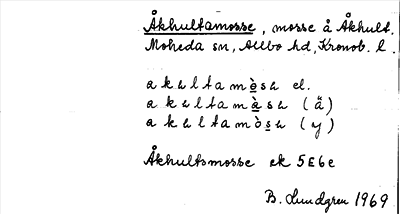 Åkhultamosse, mosse å Åkhult.
Moheda sn, Allbo hd, Kronob. l.
akultamòsu el.
akultamàsu (ä)
akultamòsu (y)
Åkhultsmosse ek 5E6e
B. Lundgren 1969